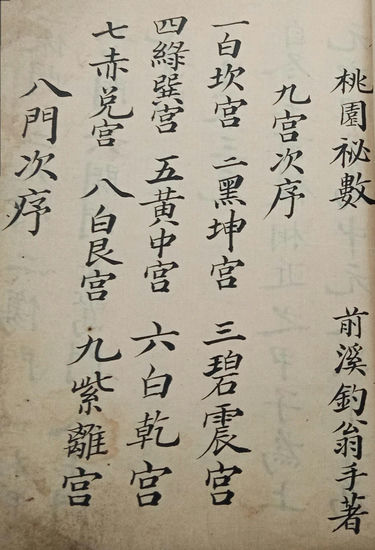 桃園祕數 前溪釣翁手著
九宮次序
一白坎宮 二黑坤宮 三碧震宮
四綠巽宮 五黃中宮 六白乾宮
七赤兌宮 八白艮宮 九紫離宮
八門次序